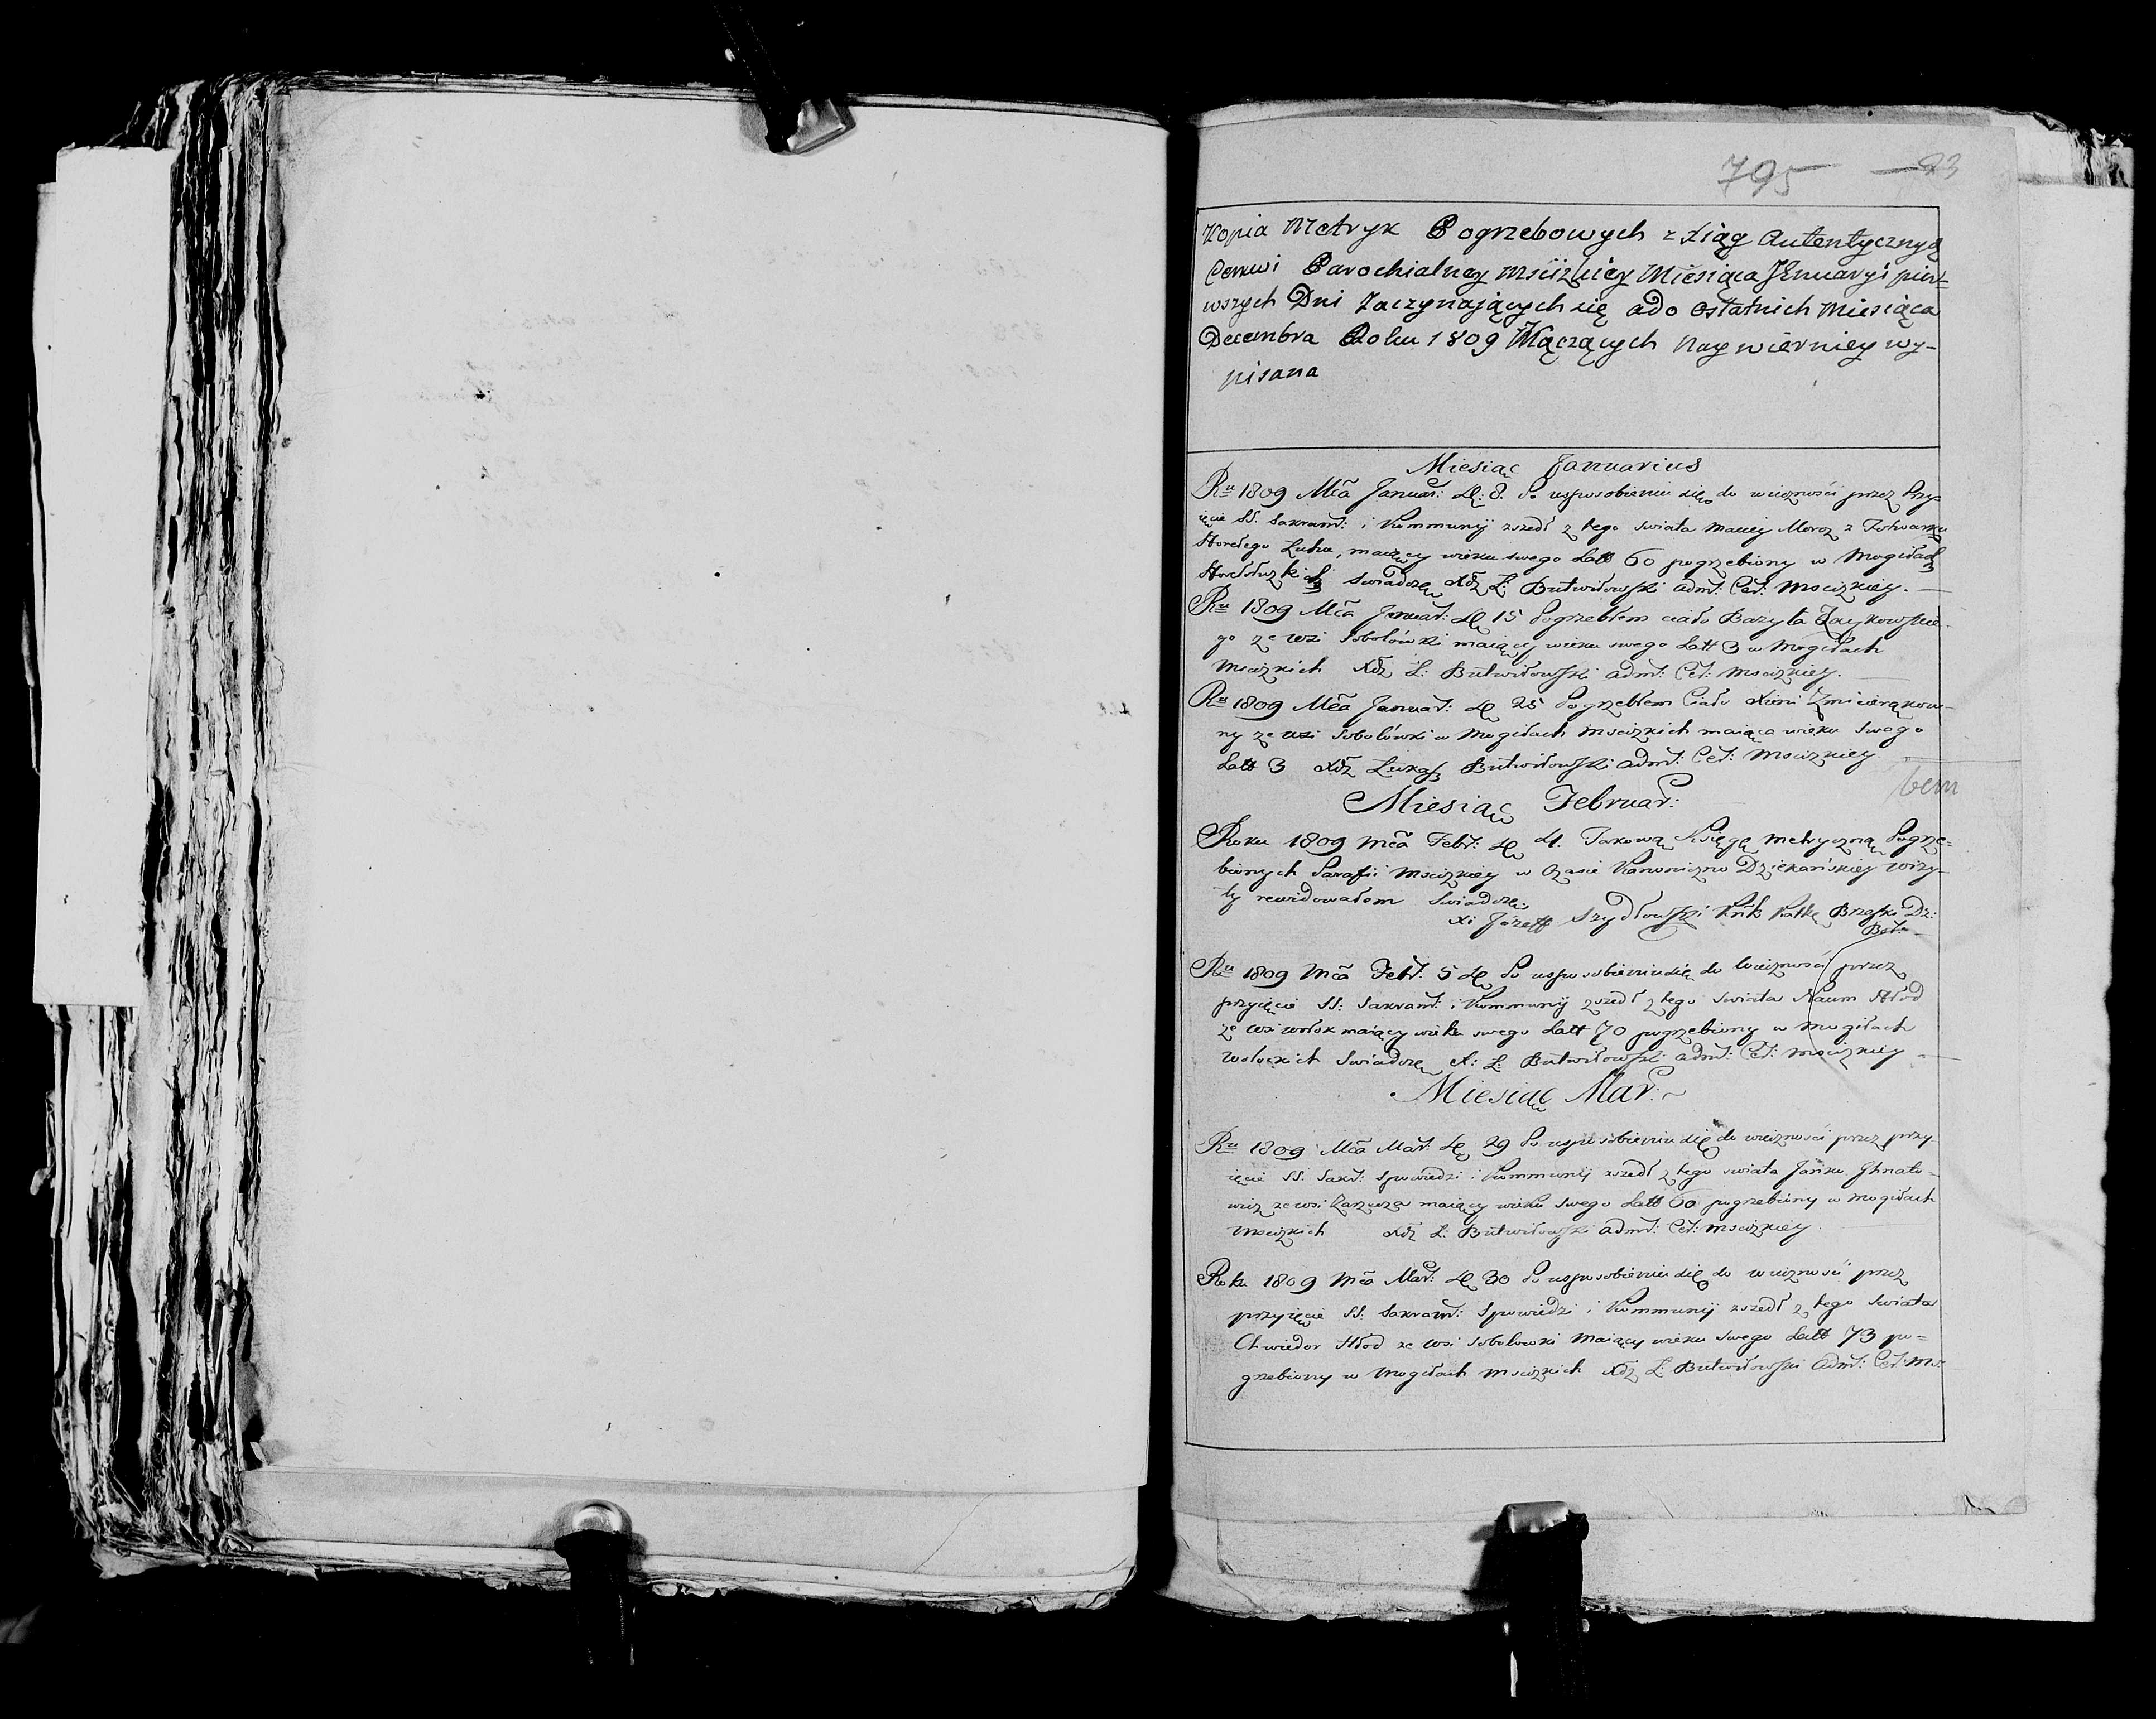 795 — 93
Kopia Metryk Pogrzebowych z Xiąg Autentycznych
Cerkwi Parochialney Mscizkiey Miesiąca Jenuaryi pier=
wszych Dni Zaczynających się ado Ostatnich Miesiąca
Decembra Roku 1809 Włączących Nay wierniey wy-
pisana
Miesiąc Januarius
Ru 1809 Mca Januar: D: 8. Po usposobieniu się do wiecznosci przez Przy=
ięcie SS. Sakram: i Kommunij zszedł z tego swiata Maciey Moroz z Folwarku
Horełego Luha, maiący wieku swego Latt 60 pogrzebiony w Mogiłach
swiadczę Xdz Ł: Butwiłowski adm: Cer: Mscizkiey.
Ru 1809 Mca Januar: D 15 Pogrzebłem ciało Bazyla Zaykowskie
go ze wsi Sobolówki maiący wieku swego Latt 3 w Mogiłach
Mscizkich Xdz Ł: Butwiłowski adm: Cer: Mscizkiey.
Ru 1809 Mca Januar: D 25 Pogrzebłem Ciało Xieni
ny ze wsi Sobolówki w Mogiłach Mscizkich maiąca wieku swego
Latt 3 Xdz Łukasz Butwiłowski adm: Cer: Mscizkiey
Miesiąc Februar:
Roku 1809 Mca Febr: D 4. Takową Księgę metryczną Pogrze=
bionych Parafii Mscizkiey w Czasie Kanoniczno Dziekańskiey wizy-
ty rewidowałem Swiadczę
Xi Józeff Szydłowski Brzeski Dz:
Ru 1809 Mca Febr: 5 D Po usposobieniu się do wiecznosci przez
przyięcie SS: Sakram: i Kommunij zszedł z tego swiata Naum Hłod
ze wsi Wołok maiący wieku swego Latt 70 pogrzebiony w Mogiłach
Wołockich Swiadczę X: Ł: Butwiłowski adm: Cer: Mscizkiey
Miesiąc Mar:
Ru 1809 Mca Mar: D 29 Po usposobieniu się do wiecznosci przez przy
ięcie SS. Sakr: Spowiedzi i Kommunij zszedł z tego swiata Janko Ihnato-
wicz ze wsi maiący wieku swego Latt 60 pogrzebiony w Mogiłach
Mscizkich Xdz Ł: Butwiłowski adm: Cer: Mscizkiey.
Roku 1809 Mca Mar: D 30 Po usposobieniu się do wiecznosci przez
przyięcie SS: Sakram: Spowiedzi i Kommunij zszedł z tego swiata
Chwiedor Hłod ze wsi Sobolowki Maiący wieku swego Latt 73 po=
grzebiony w Mogiłach Mscizkich Xdz Ł: Butwiłowski Adm: Cer: Ms